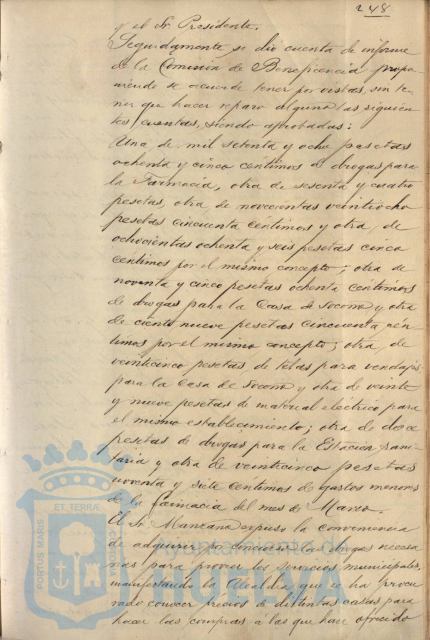 248
y el Sr. Presidente.
Seguidamente se dio cuenta de informe
de la Comisión de Beneficencia propo-
niendo se acuerde tener por vistas, sin te-
ner que hacer reparo alguno las siguien-
tes cuentas, siendo aprobadas:
Una de mil setenta y ocho pesetas
ochenta y cinco centimos de drogas para
la Farmacia, otra de sesenta y cuatro
pesetas, otra de novecientas veintiocho
pesetas cincuenta centimos y otra, de
ochocientas ochenta y seis pesetas cinco
centimos por el mismo concepto; otra de
noventa y cinco pesetas ochenta centimos
de drogas para la Casa de Socorro y otra
de ciento nueve pesetas cincuenta cén-
timos por el mismo concepto; otra de
veinticinco pesetas de telas para vendajes
para la Casa de Socorro y otra de veinte
y nueve pesetas de material electrico para
el mismo establecimiento; otra de doce
pesetas de drogas para la Estación sani-
taria y otra de veinticinco pesetas
noventa y siete centimos de gastos menores
de la farmacia del mes de Marzo.
El Sr. Manzano expuso la conveniencia
de adquirir por concurso las drogas necesa-
rias para proveer los servicios municipales,
manifestando la Alcaldia que se ha procu-
rado conocer precios de distintas casas para
hacer las compras a las que hace ofrecido
PORTUS MARIS ET TERRAE
Ayuntamiento de
HUELVA